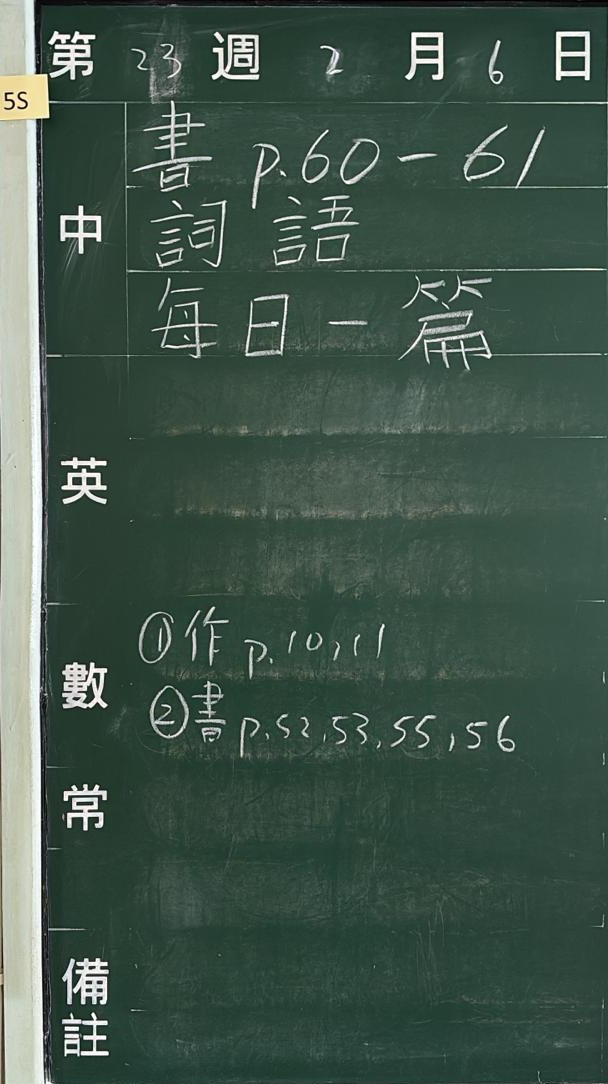 第 23 週 2 月 6 日
5S
中
書 p.60-61
詞語
每日一篇
英
數
①作 p.10,11
②書 p.52,53,55,56
常
備註